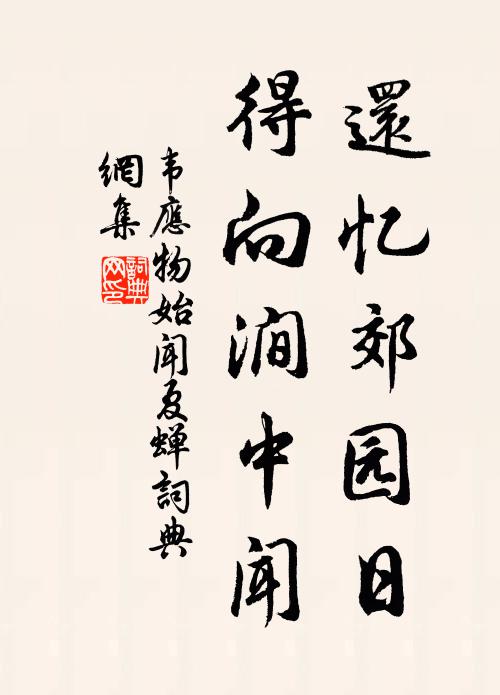 還忆郊园日
得向澗中闻
韦應物始闻夏蝉詞典
網集
詞典
网印